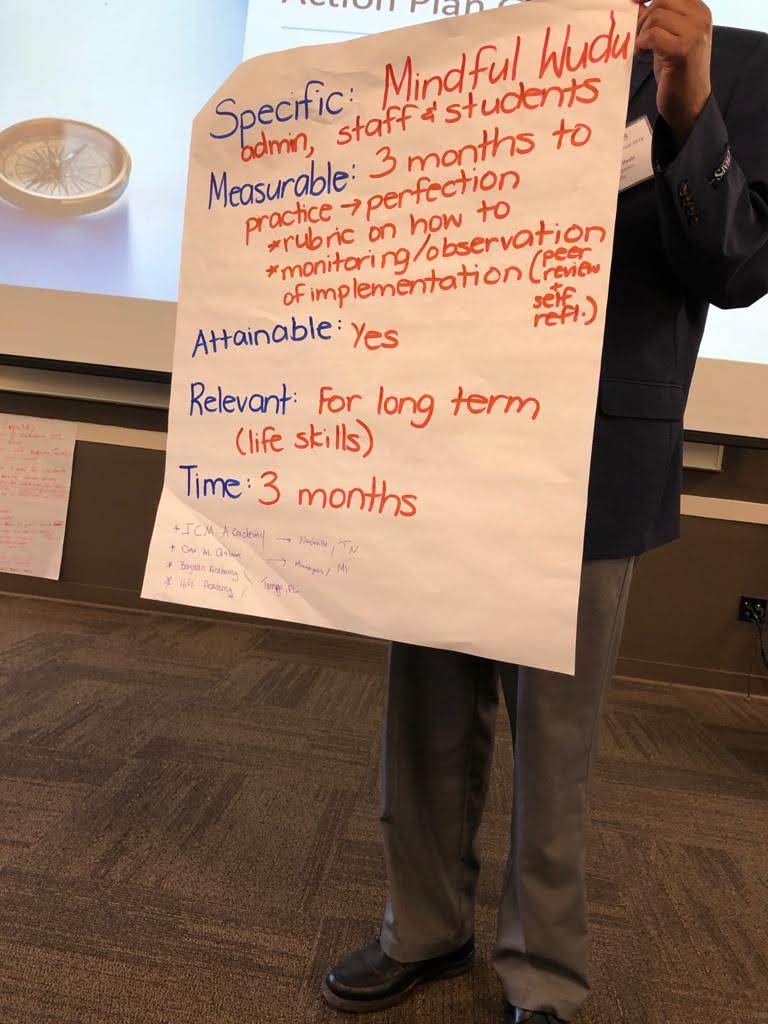 Action Plan
Specific: Mindful Wudu
admin, staff & students
Measurable: 3 months to
practice → perfection
*rubric on how to
*monitoring/observation
of implementation (peer
review
+
self
refl.)
Attainable: Yes
Relevant: For long term
(life skills)
Time: 3 months
* ICM Academy → Nashville, TN
* Dar AL → MI
* Bayaan Academy
* Academy Tampa, FL